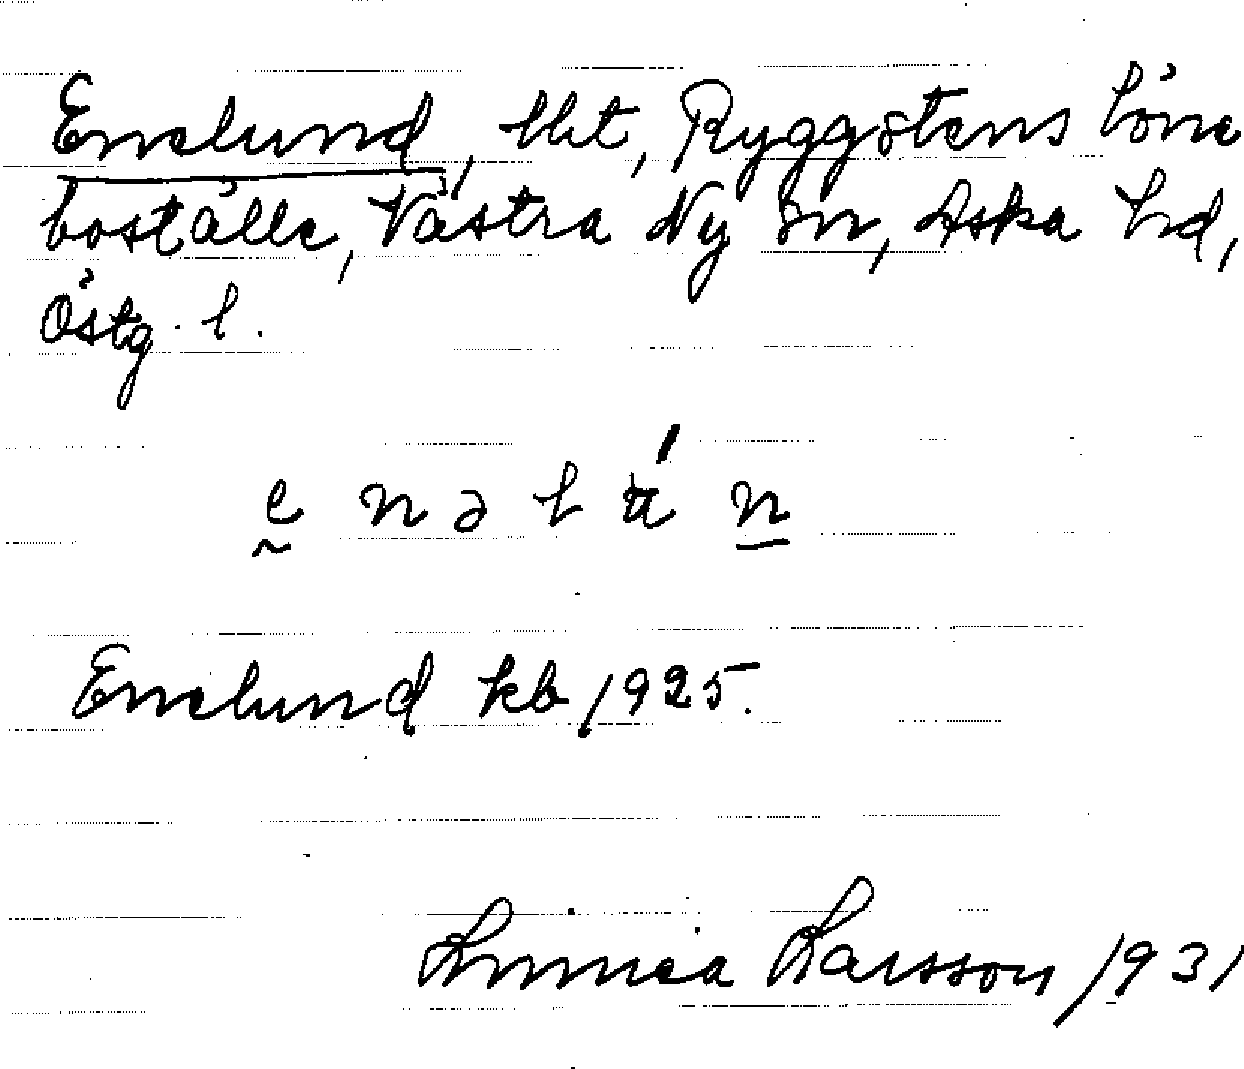 Enelund, tht, Ryggstens löne
boställe, Västra Ny sn, Aska hd,
Östg. l.
e n ə l ú n
Enelund kb 1925.
Linnea Larsson 1931